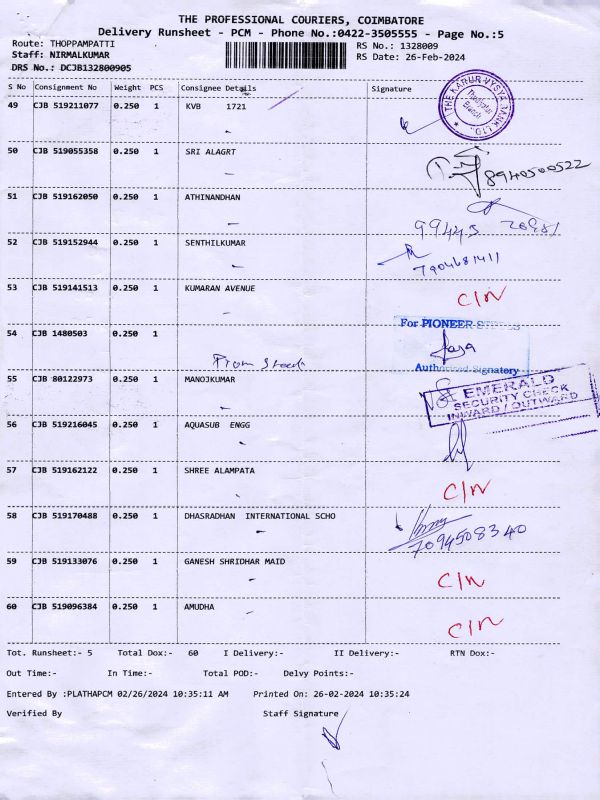 THE PROFESSIONAL COURIERS, COIMBATORE
Delivery Runsheet - PCM - Phone No.:0422-3505555 - Page No.:5
Route: THOPPAMPATTI RS No.: 1328009
Staff: NIRMALKUMAR RS Date: 26-Feb-2024
DRS No.: DCJB132800905
S No Consignment No Weight PCS Consignee Details Signature
49 CJB 519211077 0.250 1 KVB 1721
THE KARUR VYSYA BANK LTD.
Branch
50 CJB 519055358 0.250 1 SRI ALAGRT
8940500522
51 CJB 519162050 0.250 1 ATHINANDHAN
99445
52 CJB 519152944 0.250 1 SENTHILKUMAR
7904681411
53 CJB 519141513 0.250 1 KUMARAN AVENUE C/N
54 CJB 1480503 0.250 1
For PIONEER
From
Authorised Signatory
55 CJB 80122973 0.250 1 MANOJKUMAR
EMERALD
SECURITY CHECK
INWARD / OUTWARD
56 CJB 519216045 0.250 1 AQUASUB ENGG
57 CJB 519162122 0.250 1 SHREE ALAMPATA C/N
58 CJB 519170488 0.250 1 DHASRADHAN INTERNATIONAL SCHO
7094508340
59 CJB 519133076 0.250 1 GANESH SHRIDHAR MAID C/N
60 CJB 519096384 0.250 1 AMUDHA C/N
Tot. Runsheet:- 5 Total Dox:- 60 I Delivery:- II Delivery:- RTN Dox:-
Out Time:- In Time:- Total POD:- Delvy Points:-
Entered By :PLATHAPCM 02/26/2024 10:35:11 AM Printed On: 26-02-2024 10:35:24
Verified By Staff Signature